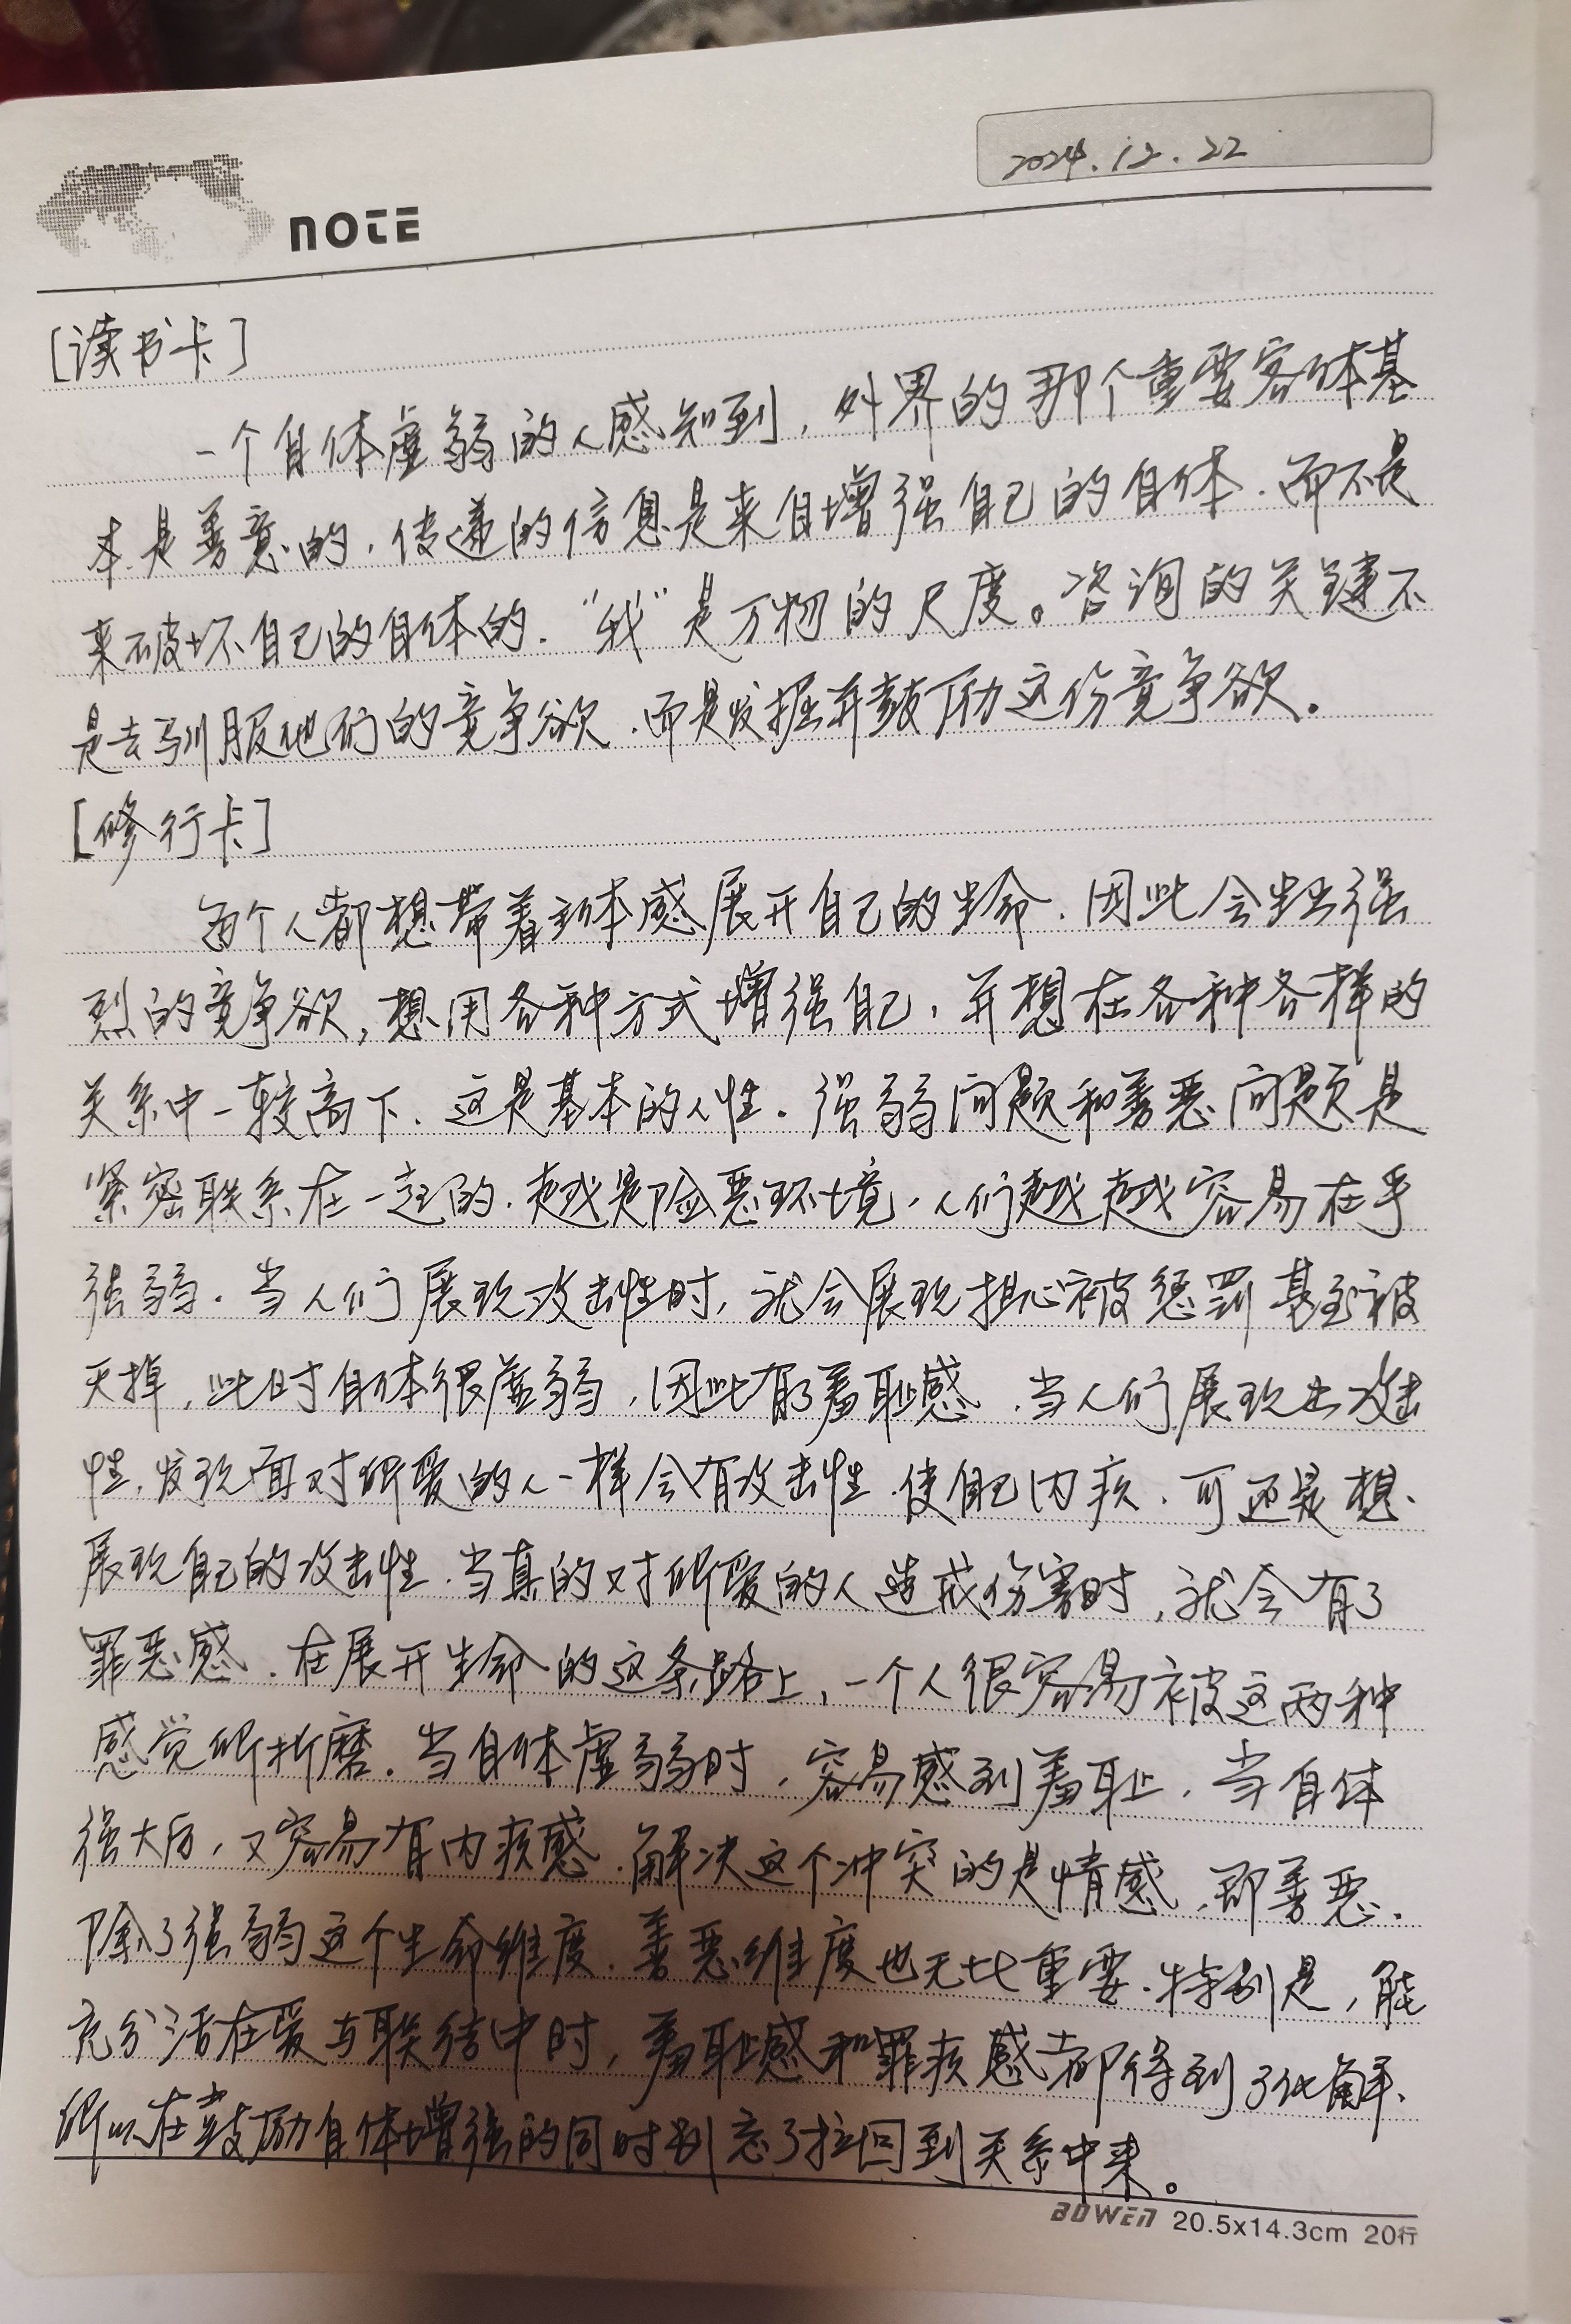 2024.12.22
NOTE
[读书卡]
一个自体虚弱的人感知到，外界的那个重要客体基
本是善意的，传递的信息是来自增强自己的自体.而不是
来破坏自己的自体的."我"是万物的尺度。咨询的关键不
是去驯服他们的竞争欲.而是发掘并鼓励这份竞争欲.
[修行卡]
每个人都想带着主体感展开自己的生命.因此会生出强
烈的竞争欲,想用各种方式增强自己，并想在各种各样的
关系中一较高下.这是基本的人性.强弱问题和善恶问题是
紧密联系在一起的.越是险恶环境，人们越越容易在乎
强弱.当人们展现攻击性时,就会展现担心被惩罚甚至被
灭掉,此时自体很虚弱,因此有了羞耻感.当人们展现出攻击
性,发现面对所爱的人一样会有攻击性.使自己内疚.可还是想
展现自己的攻击性.当真的对所爱的人造成伤害时,就会有了
罪恶感.在展开生命的这条路上,一个人很容易被这两种
感觉所折磨.当自体虚弱时,容易感到羞耻.当自体
强大后,又容易有内疚感.解决这个冲突的是情感,即善恶.
除了强弱这个生命维度.善恶维度也无比重要.特别是,能
充分活在爱与联结中时,羞耻感和罪疚感都得到了化解.
所以在鼓励自体增强的同时别忘了拉回到关系中来。
BOWEN 20.5x14.3cm 20行